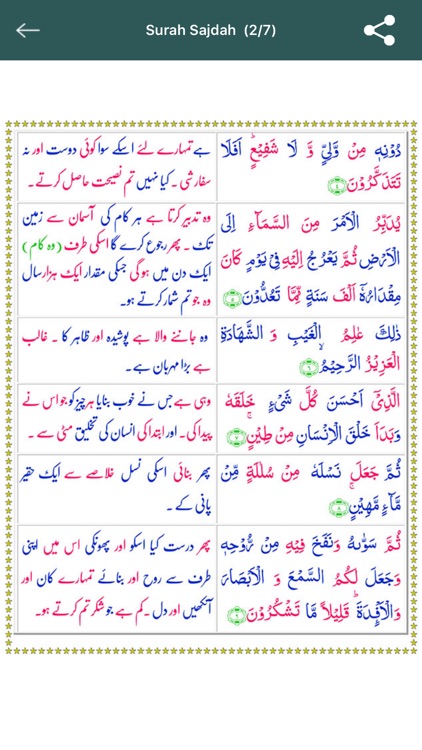 Surah Sajdah (2/7)
دُوْنِهٖ مِنْ وَّلِيٍّ وَّ لَا شَفِيْعٍ ؕ اَفَلَا
تَتَذَكَّرُوْنَ ۴
ہے تمہارے لئے اسکے سوا کوئی دوست اور نہ
سفارشی ۔ کیا نہیں تم نصیحت حاصل کرتے۔
يُدَبِّرُ الْاَمْرَ مِنَ السَّمَآءِ اِلَى
الْاَرْضِ ثُمَّ يَعْرُجُ اِلَيْهِ فِيْ يَوْمٍ كَانَ
مِقْدَارُهٗۤ اَلْفَ سَنَةٍ مِّمَّا تَعُدُّوْنَ ۵
وہ تدبیر کرتا ہے ہر کام کی آسمان سے زمین
تک ۔ پھر رجوع کرے گا اسکی طرف (وہ کام)
ایک دن میں ہوگی جسکی مقدار ایک ہزار سال
وہ جو تم شمار کرتے ہو۔
ذٰلِكَ عٰلِمُ الْغَيْبِ وَ الشَّهَادَةِ
الْعَزِيْزُ الرَّحِيْمُ ۙ ۶
وہ جاننے والا ہے پوشیدہ اور ظاہر کا ۔ غالب
ہے بڑا مہربان ہے۔
الَّذِيْۤ اَحْسَنَ كُلَّ شَيْءٍ خَلَقَهٗ
وَ بَدَاَ خَلْقَ الْاِنْسَانِ مِنْ طِيْنٍ ۚ ۷
وہی ہے جس نے خوب بنایا ہر چیز کو جو اس نے
پیدا کی ۔ اور ابتدا کی انسان کی تخلیق مٹی سے ۔
ثُمَّ جَعَلَ نَسْلَهٗ مِنْ سُلٰلَةٍ مِّنْ
مَّآءٍ مَّهِيْنٍ ۚ ۸
پھر بنائی اسکی نسل خلاصے سے ایک حقیر
پانی کے ۔
ثُمَّ سَوّٰىهُ وَنَفَخَ فِيْهِ مِنْ رُّوْحِهٖ
وَجَعَلَ لَكُمُ السَّمْعَ وَ الْاَبْصَارَ
وَالْاَفْـِٕدَةَ ؕ قَلِيْلًا مَّا تَشْكُرُوْنَ ۹
پھر درست کیا اسکو اور پھونکی اس میں اپنی
طرف سے روح اور بنائے تمہارے کان اور
آنکھیں اور دل ۔ کم ہے جو شکر تم کرتے ہو۔